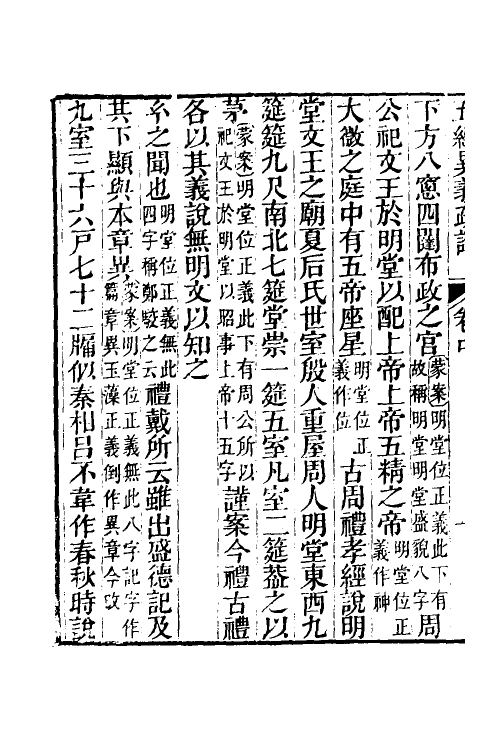 五經異義疏證 卷中
下方八窻四闥布政之宫蒙案明堂位正義此下有故稱明堂明堂盛貌八字周
公祀文王於明堂以配上帝上帝五精之帝明堂位正義作神
大微之庭中有五帝座星明堂位正義作位古周禮孝經說明
堂文王之廟夏后氏世室殷人重屋周人明堂東西九
筵筵九尺南北七筵堂崇一筵五室凡室二筵葢之以
茅蒙案明堂位正義此下有周公所以祀文王於明堂以昭事上帝十五字謹案今禮古禮
各以其義說無明文以知之
𤣥之聞也明堂位正義無此四字稱鄭駮之云禮戴所云雖出盛德記及
其下顯與本章異蒙案明堂位正義無此八字記字作篇章異玉藻正義倒作異章今改
九室三十六戸七十二牖似秦相呂不韋作春秋時說